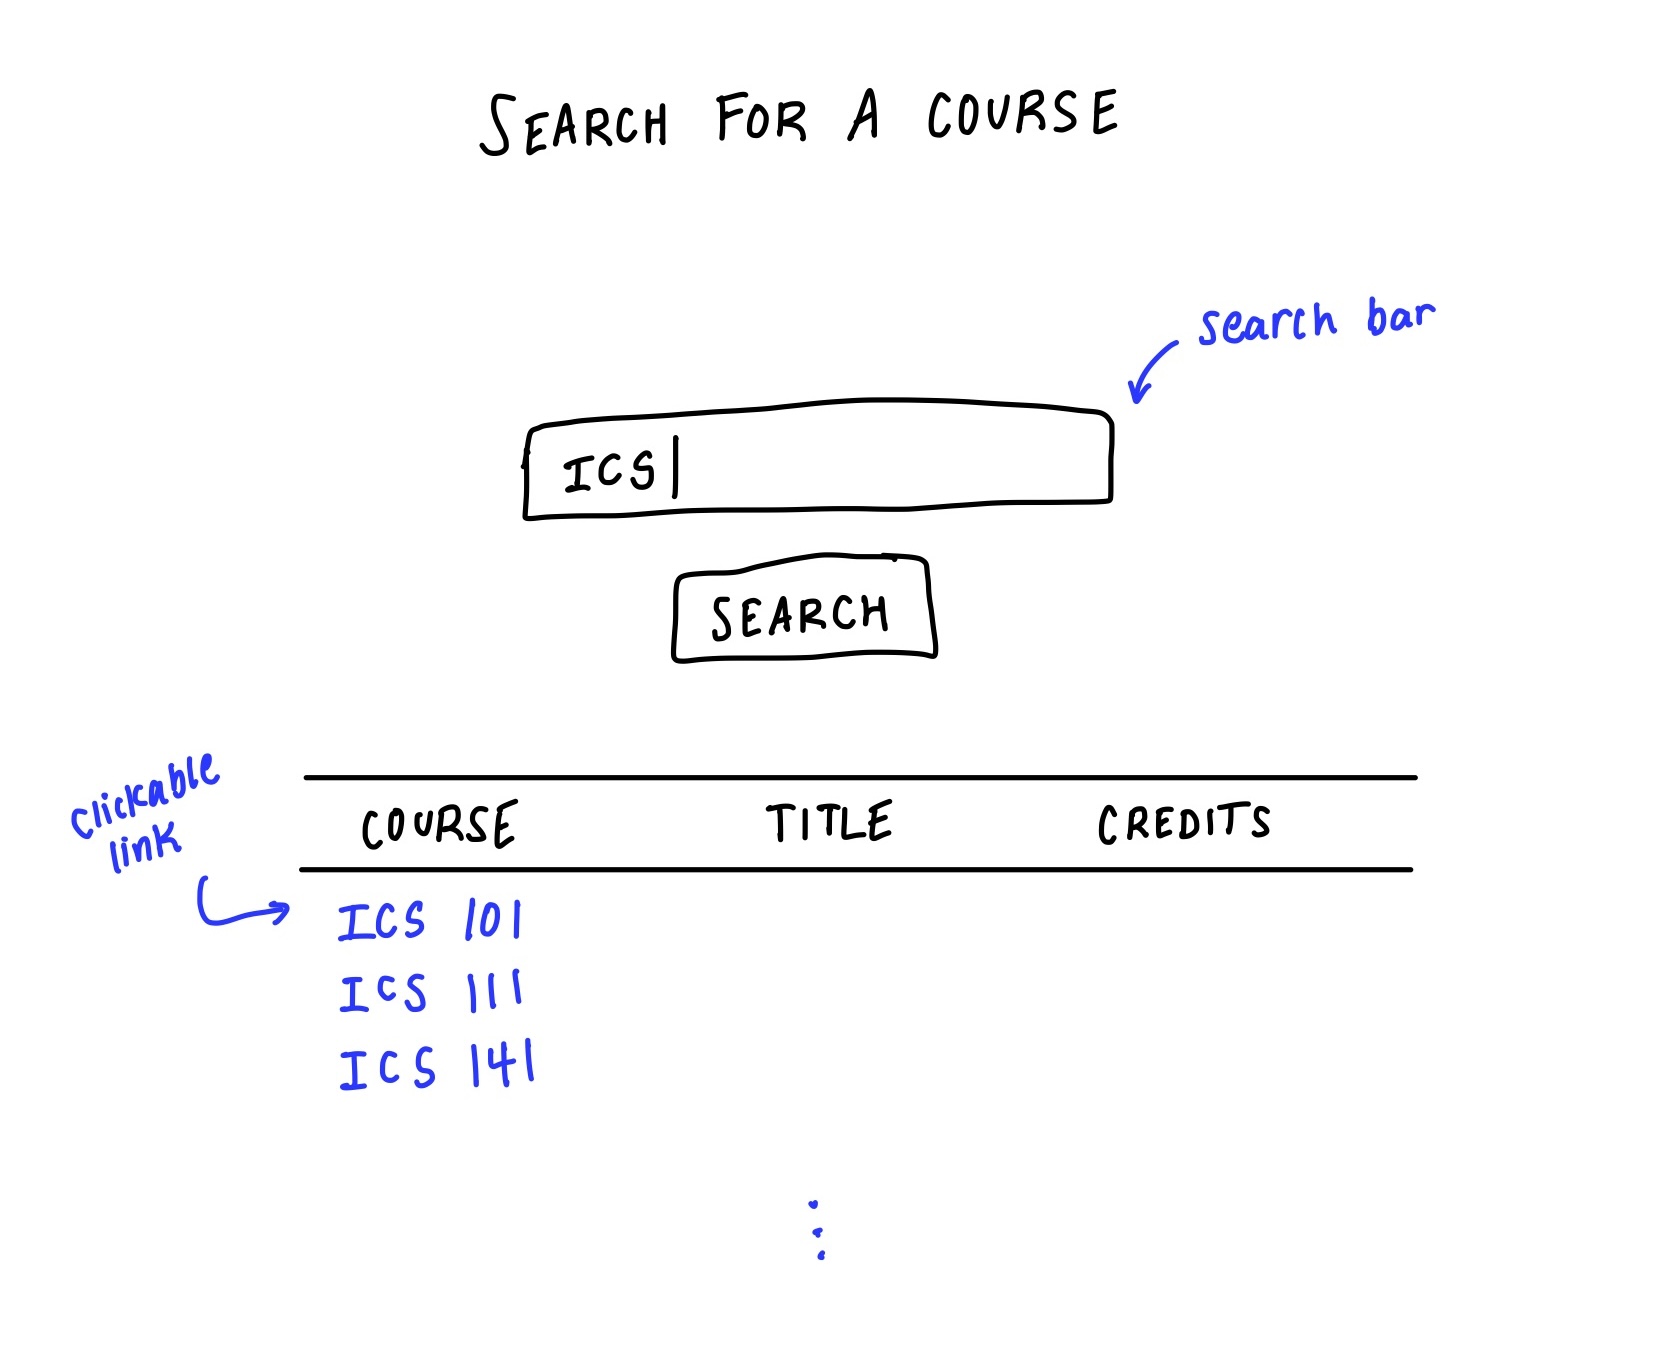 SEARCH FOR A COURSE
search bar
ICS
SEARCH
clickable
link
COURSE TITLE CREDITS
ICS 101
ICS 111
ICS 141